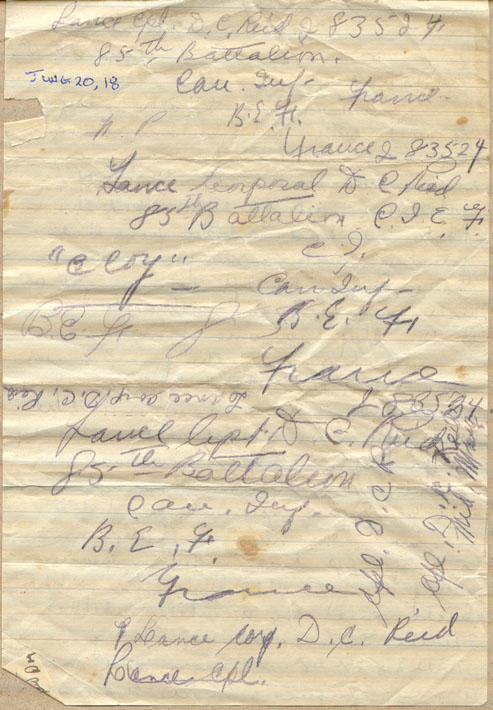 Lance Cpl. D. C. Reid 283524
85th Battalion.
JUNE 20, 18
Can. Inf.
France.
B. E. F.
N. P
France 283524
Lance Corporal D C Reid
85th Battalion C. I. E. F.
C. I.
"C Coy"
Can. Inf.
B. E. F.
B. E. F
France
Lance Corp. D. C. Reid
283524
Lance Cpl. D. C. Reid
85th Battalion
Can. Inf.
B. E. F.
France
Cpl. D. C. R
Cpl. D. C. Reid
Lance Corp. D. C. Reid
Lance Cpl.